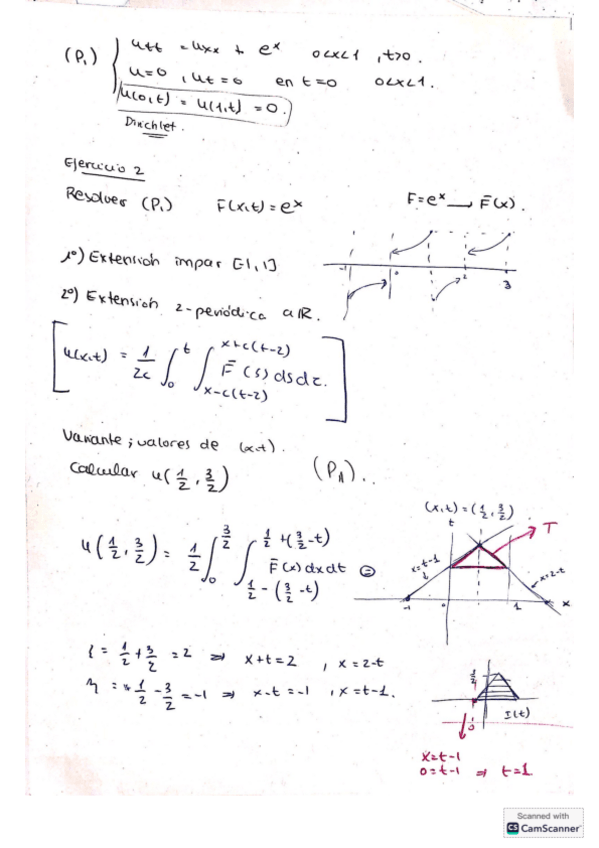 (P₁) { utt = uxx + eˣ   0<x<1 , t>0.
u=0 , ut=0   en t=0   0<x<1.
u(0,t) = u(1,t) = 0.
Dirichlet.
Ejercicio 2
Resolver (P₁)   F(x,t)=eˣ   F=eˣ → F̄(x).
1º) Extensión impar [-1,1]
-1 0 2 3
2º) Extensión 2-periódica a ℝ.
[ u(x,t) = 1/2c ∫₀^t ∫_{x-c(t-z)}^{x+c(t-z)} F̄(s) ds dz. ]
Variante ; valores de (x,t).
Calcular u(1/2, 3/2)   (P₁)..
(x,t)=(1/2, 3/2)
t
T
x=t-1
x=2-t
-1 0 1 x
u(1/2, 3/2) = 1/2 ∫₀^{3/2} ∫_{1/2-(3/2-t)}^{1/2+(3/2-t)} F̄(x) dx dt =
ξ = 1/2 + 3/2 = 2 ⇒ x+t=2 , x=2-t
η = 1/2 - 3/2 = -1 ⇒ x-t=-1 , x=t-1.
I(t)
x=t-1
0=t-1 ⇒ t=1
Scanned with
CS CamScanner